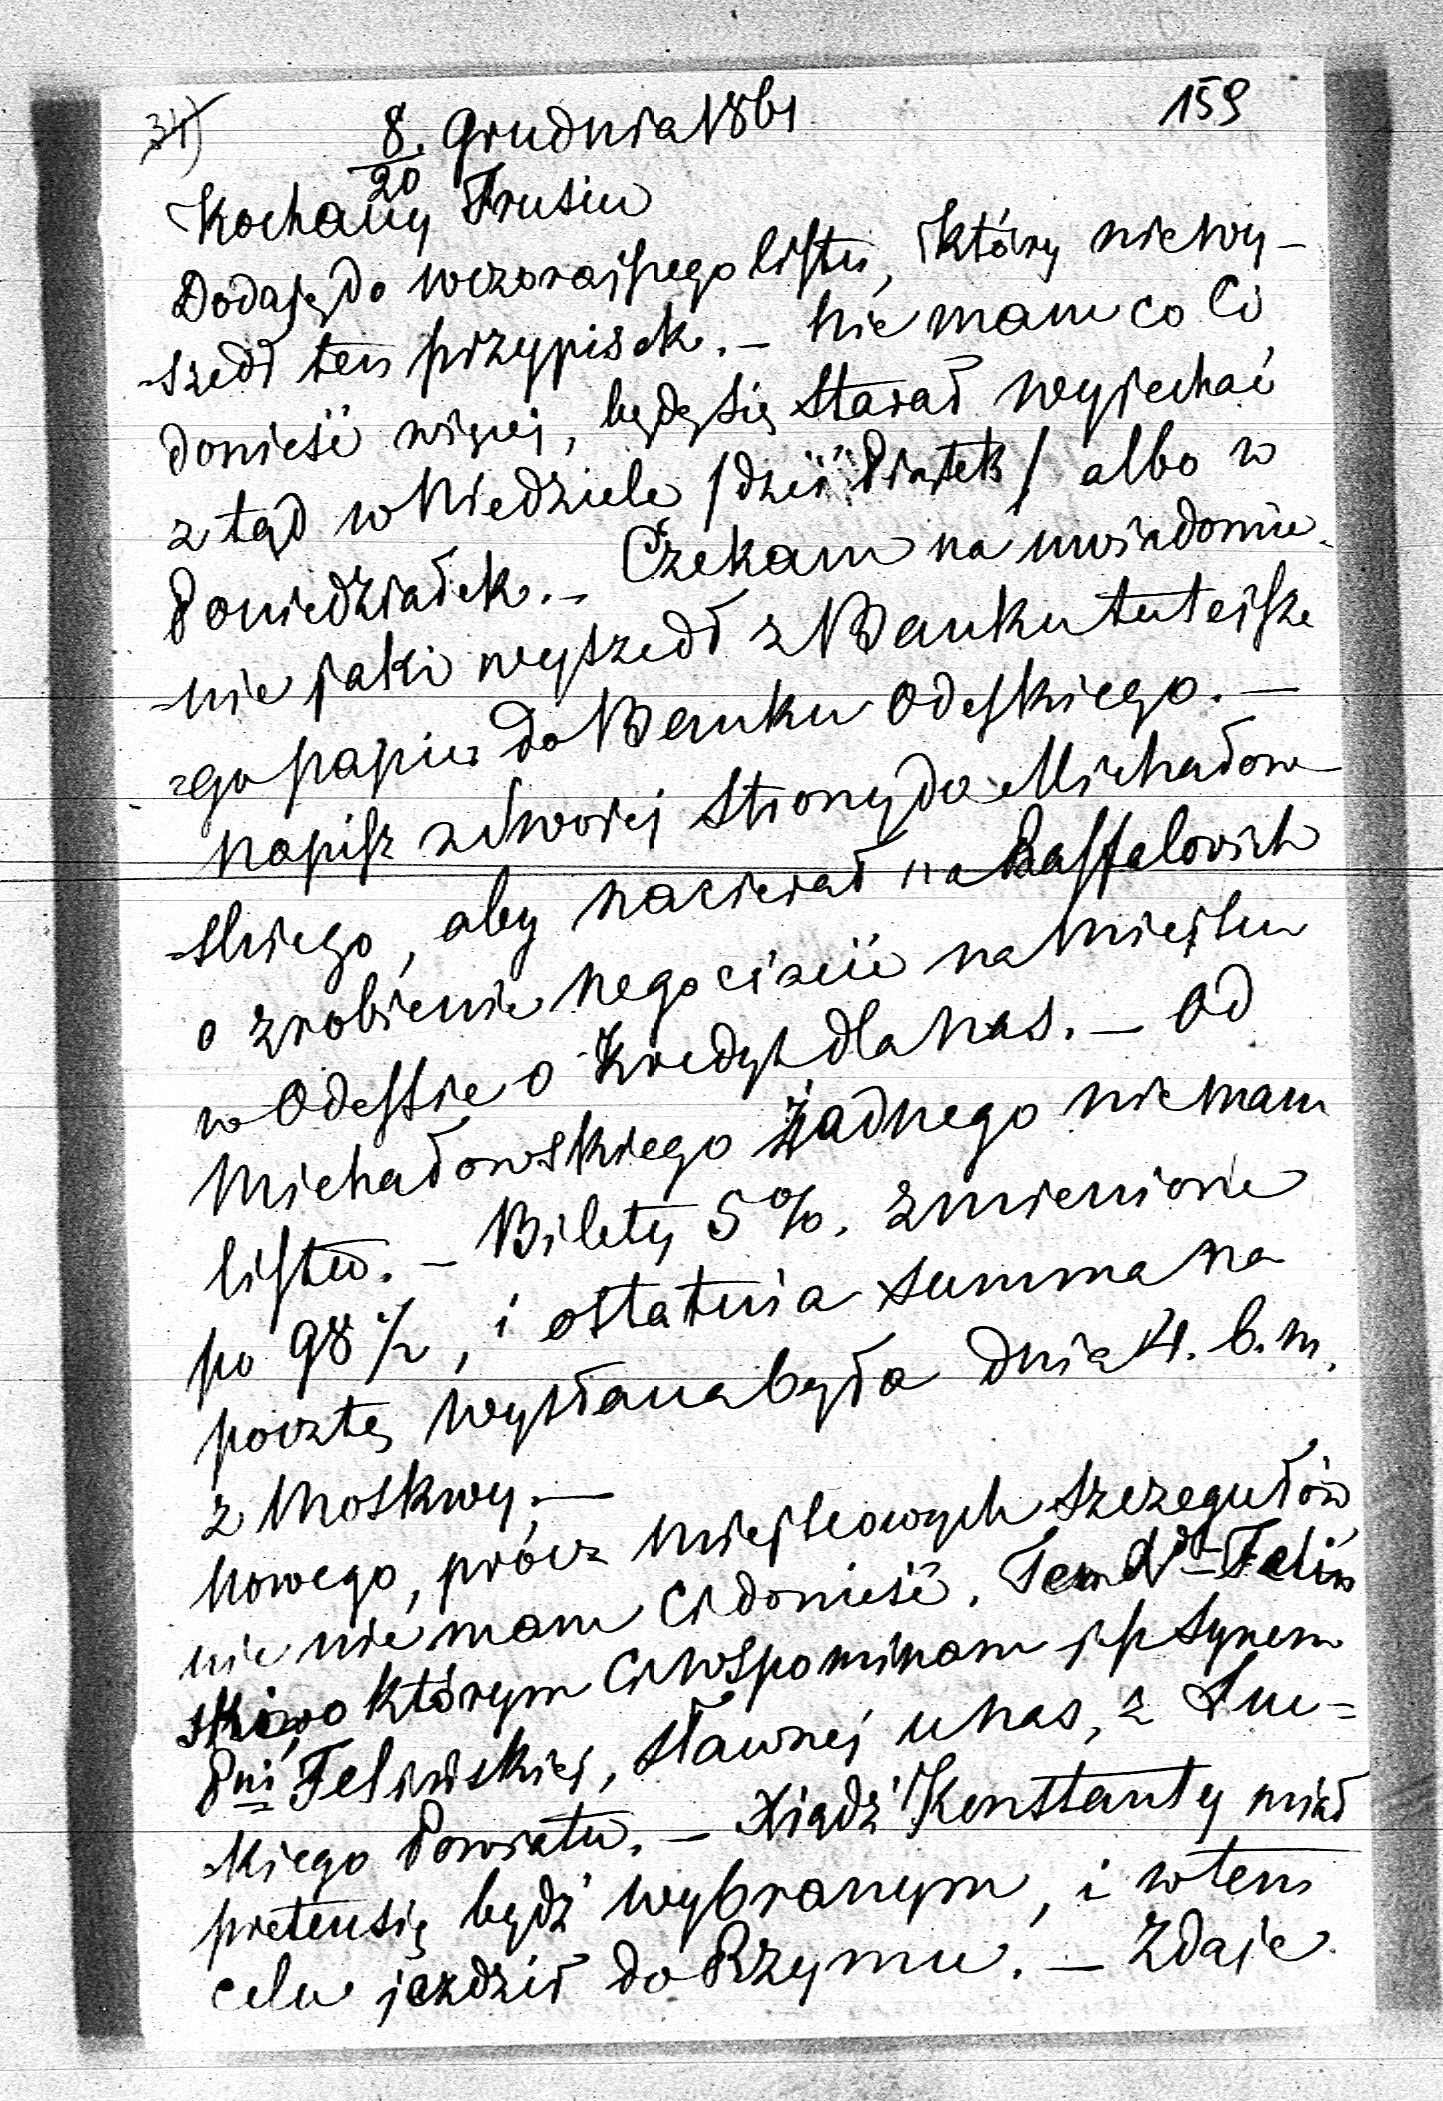 34) 8/20. Grudnia 1861 159
Kochany Frusiu
Dodaję do wczorajszego listu, który niewy-
-szedł ten przypisek. – Nie mam co Ci
donieść więcej, będę się starał wyjechać
z tąd w Niedziele /dziś Piątek/ albo w
Poniedziałek. – Czekam na uwiadomie-
-nie jaki wyszedł z Banku tutejsze
-go papier do Banku Odeskiego. –
Napisz z twojej strony do Michałow-
-skiego, aby nacierał na Raffalovich
o zrobienie negocizcii na Miejscu
w Odessie o Kredyt dla nas. – Od
Michałowskiego żadnego nie mam
listu. – Bilety 5%. zmienione
po 98 1/2, i ostatnia summa na
pocztę wysłana była dnia 4. b.m.
z Moskwy. –
Nowego, prócz Miejscowych szczegułów
nic nie mam Ci donieść. Felin
ski, o którym Ci wspominam jest synem
Pni Felińskiej, sławnej u nas, z Łuc=
-kiego Powiatu. – Xiądź Konstanty miał
pretensię bydź wybranym, i w tem
celu jezdził do Rzymu. – Zdaje